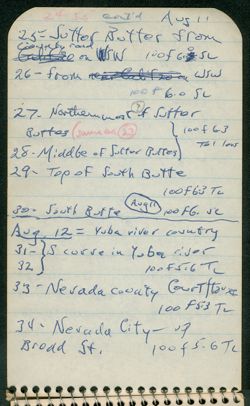 24-35 cont'd Aug 11
25- Sutter Buttes from
County road on WSW 100 f6.3 SL
26- from WSW
100 f 6.0 SL
27- Northernmost of Sutter
Buttes (Same as 23) } 100 f 63
28- Middle of Sutter Buttes Tel lens
29- Top of South Butte
100 f 63 TL
30- South Butte (Aug 11) 100 f6. SL
Aug. 12 = Yuba river country
31- } S curve in Yuba river
32 } 100 f 5.6 TL
33- Nevada county Courthouse
100 f 53 TL
34- Nevada City- up
Broad St. 100 f 5.6 TL